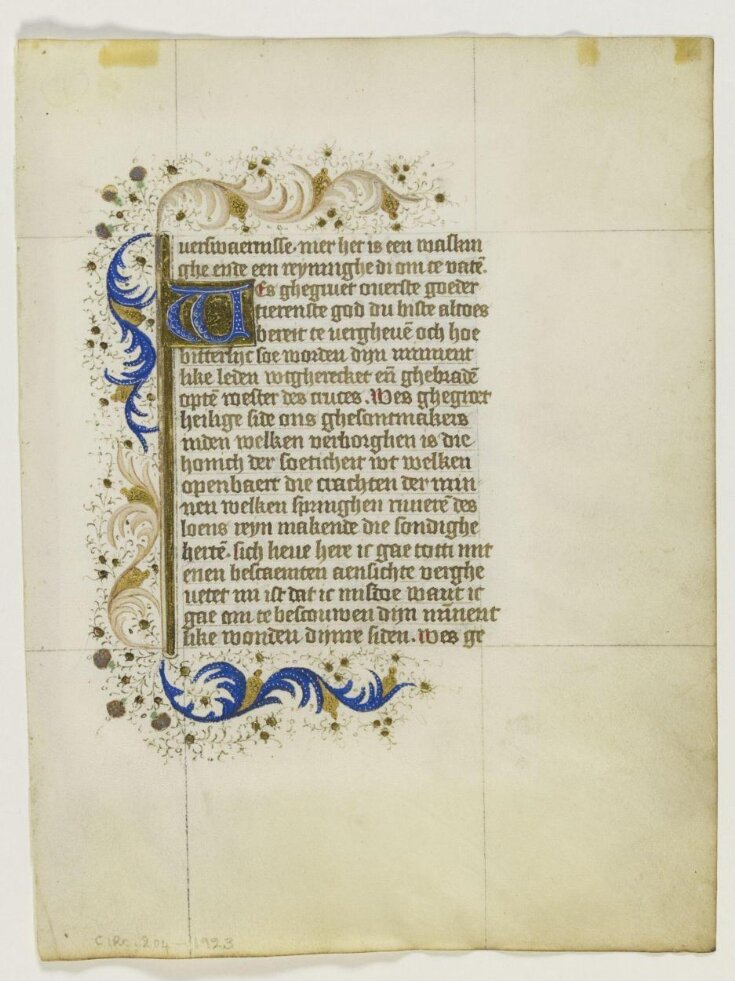 uerswaernisse. mer het is een waskin
ghe ende een reyninghe di om te vatē.
Wes ghegruet ouerste goeder
tierenste god du biste altoes
bereit te vergheuē och hoe
bitterlijc soe worden dijn minnent
like leden wtgherecket eñ ghebradē
optē roester des cruces. Wes ghegroet
heilige side ons ghesontmakers
inden welken verborghen is die
honich der soeticheit wt welken
openbaert die crachten der min
nen welken springhen riuierē des
loens reyn makende die sondighe
hertē. sich lieue here ic gae totti mit
enen bescaemten aensichte verghe
uetet mi ist dat ic misdoe want ic
gae om te bescouwen dijn minnent
like wonden dijnre siden. Wes ge
CIRC. 204 - 1923